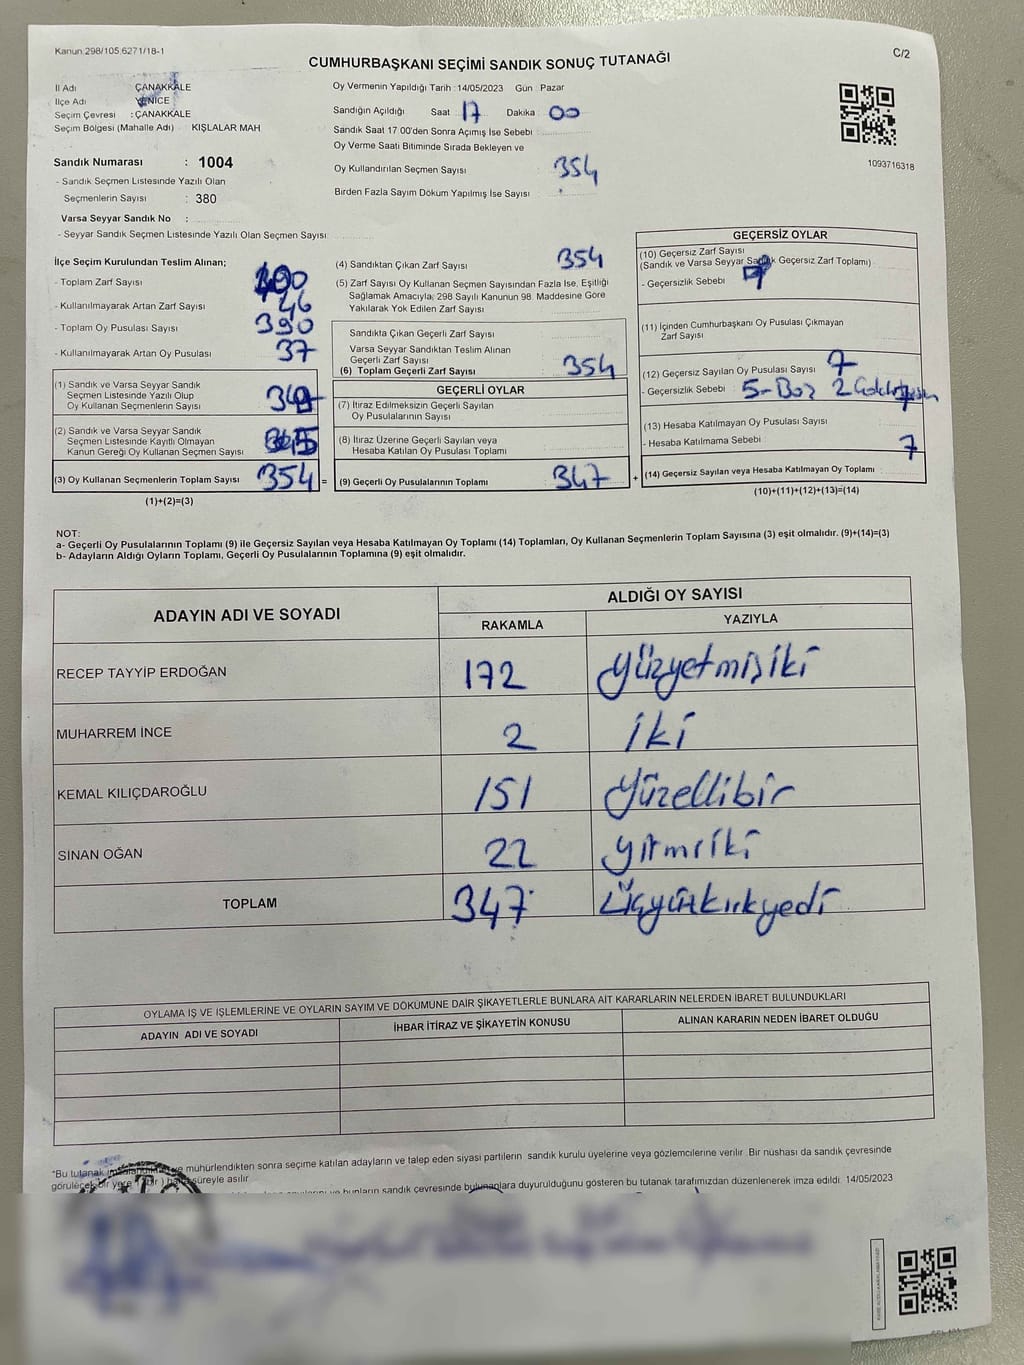 Kanun.298/105.6271/18-1
C/2
CUMHURBAŞKANI SEÇİMİ SANDIK SONUÇ TUTANAĞI
İl Adı ÇANAKKALE
İlçe Adı YENİCE
Seçim Çevresi : ÇANAKKALE
Seçim Bölgesi (Mahalle Adı) KIŞLALAR MAH
Sandık Numarası : 1004
- Sandık Seçmen Listesinde Yazılı Olan
Seçmenlerin Sayısı : 380
Varsa Seyyar Sandık No :
- Seyyar Sandık Seçmen Listesinde Yazılı Olan Seçmen Sayısı
Oy Vermenin Yapıldığı Tarih : 14/05/2023 Gün Pazar
Sandığın Açıldığı Saat 17 Dakika 00
Sandık Saat 17 00'den Sonra Açımış İse Sebebi
Oy Verme Saati Bitiminde Sırada Bekleyen ve
Oy Kullandırılan Seçmen Sayısı 354
Birden Fazla Sayım Döküm Yapılmış İse Sayısı
1093716318
İlçe Seçim Kurulundan Teslim Alınan;
- Toplam Zarf Sayısı
- Kullanılmayarak Artan Zarf Sayısı 46
- Toplam Oy Pusulası Sayısı 390
- Kullanılmayarak Artan Oy Pusulası 37
(1) Sandık ve Varsa Seyyar Sandık
Seçmen Listesinde Yazılı Olup
Oy Kullanan Seçmenlerin Sayısı
(2) Sandık ve Varsa Seyyar Sandık
Seçmen Listesinde Kayıtlı Olmayan
Kanun Gereği Oy Kullanan Seçmen Sayısı
(3) Oy Kullanan Seçmenlerin Toplam Sayısı 354 =
(1)+(2)=(3)
(4) Sandıktan Çıkan Zarf Sayısı 354
(5) Zarf Sayısı Oy Kullanan Seçmen Sayısından Fazla İse, Eşitliği
Sağlamak Amacıyla; 298 Sayılı Kanunun 98. Maddesine Göre
Yakılarak Yok Edilen Zarf Sayısı
Sandıkta Çıkan Geçerli Zarf Sayısı
Varsa Seyyar Sandıktan Teslim Alınan
Geçerli Zarf Sayısı
(6) Toplam Geçerli Zarf Sayısı 354
GEÇERLİ OYLAR
(7) İtiraz Edilmeksizin Geçerli Sayılan
Oy Pusulalarının Sayısı
(8) İtiraz Üzerine Geçerli Sayılan veya
Hesaba Katılan Oy Pusulası Toplamı
(9) Geçerli Oy Pusulalarının Toplamı 347 +
GEÇERSİZ OYLAR
(10) Geçersiz Zarf Sayısı
(Sandık ve Varsa Seyyar Sandık Geçersiz Zarf Toplamı)
- Geçersizlik Sebebi
(11) İçinden Cumhurbaşkanı Oy Pusulası Çıkmayan
Zarf Sayısı
(12) Geçersiz Sayılan Oy Pusulası Sayısı 7
- Geçersizlik Sebebi : 5-Boş 2
(13) Hesaba Katılmayan Oy Pusulası Sayısı
- Hesaba Katılmama Sebebi 7
(14) Geçersiz Sayılan veya Hesaba Katılmayan Oy Toplamı
(10)+(11)+(12)+(13)=(14)
NOT:
a- Geçerli Oy Pusulalarının Toplamı (9) ile Geçersiz Sayılan veya Hesaba Katılmayan Oy Toplamı (14) Toplamları, Oy Kullanan Seçmenlerin Toplam Sayısına (3) eşit olmalıdır. (9)+(14)=(3)
b- Adayların Aldığı Oyların Toplamı, Geçerli Oy Pusulalarının Toplamına (9) eşit olmalıdır.
ADAYIN ADI VE SOYADI ALDIĞI OY SAYISI
RAKAMLA YAZIYLA
RECEP TAYYİP ERDOĞAN 172 yüzyetmişiki
MUHARREM İNCE 2 iki
KEMAL KILIÇDAROĞLU 151 Yüzellibir
SİNAN OĞAN 22 yirmiiki
TOPLAM 347 üçyüzkırkyedi
OYLAMA İŞ VE İŞLEMLERİNE VE OYLARIN SAYIM VE DÖKÜMÜNE DAİR ŞİKAYETLERLE BUNLARA AİT KARARLARIN NELERDEN İBARET BULUNDUKLARI
ADAYIN ADI VE SOYADI İHBAR İTİRAZ VE ŞİKAYETİN KONUSU ALINAN KARARIN NEDEN İBARET OLDUĞU
"Bu tutanak ve mühürlendikten sonra seçime katılan adayların ve talep eden siyasi partilerin sandık kurulu üyelerine veya gözlemcilerine verilir. Bir nüshası da sandık çevresinde
görülecek bir yere süreyle asılır
bunların sandık çevresinde bulunanlara duyurulduğunu gösteren bu tutanak tarafımızdan düzenlenerek imza edildi. 14/05/2023